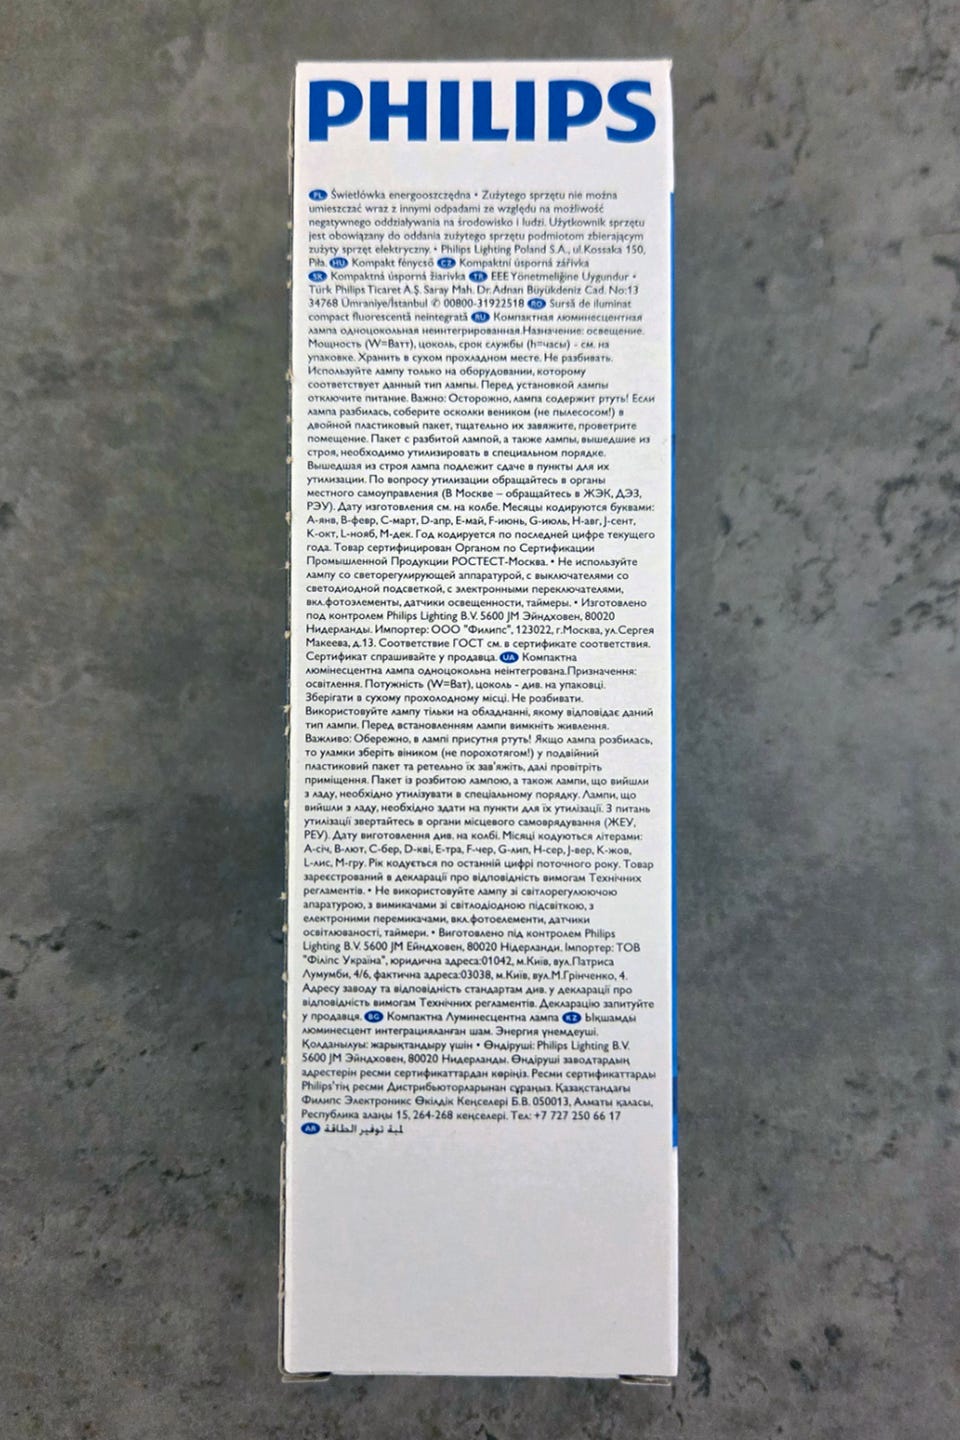 PHILIPS
PL Świetlówka energooszczędna • Zużytego sprzętu nie można
umieszczać wraz z innymi odpadami ze względu na możliwość
negatywnego oddziaływania na środowisko i ludzi. Użytkownik sprzętu
jest obowiązany do oddania zużytego sprzętu podmiotom zbierającym
zużyty sprzęt elektryczny. • Philips Lighting Poland S.A., ul.Kossaka 150,
Piła. HU Kompakt fénycső CZ Kompaktní úsporná zářivka
SK Kompaktná úsporná žiarivka TR EEE Yönetmeliğine Uygundur •
Türk Philips Ticaret A.Ş. Saray Mah. Dr. Adnan Büyükdeniz Cad. No:13
34768 Ümraniye/İstanbul ✆ 00800-31922518 RO Sursă de iluminat
compact fluorescentă neintegrată RU Компактная люминесцентная
лампа одноцокольная неинтегрированная.Назначение: освещение.
Мощность (W=Ватт), цоколь, срок службы (h=часы) - см. на
упаковке. Хранить в сухом прохладном месте. Не разбивать.
Используйте лампу только на оборудовании, которому
соответствует данный тип лампы. Перед установкой лампы
отключите питание. Важно: Осторожно, лампа содержит ртуть! Если
лампа разбилась, соберите осколки веником (не пылесосом!) в
двойной пластиковый пакет, тщательно их завяжите, проветрите
помещение. Пакет с разбитой лампой, а также лампы, вышедшие из
строя, необходимо утилизировать в специальном порядке.
Вышедшая из строя лампа подлежит сдаче в пункты для их
утилизации. По вопросу утилизации обращайтесь в органы
местного самоуправления (В Москве – обращайтесь в ЖЭК, ДЭЗ,
РЭУ). Дату изготовления см. на колбе. Месяцы кодируются буквами:
A-янв, B-февр, C-март, D-апр, E-май, F-июнь, G-июль, H-авг, J-сент,
K-окт, L-нояб, M-дек. Год кодируется по последней цифре текущего
года. Товар сертифицирован Органом по Сертификации
Промышленной Продукции РОСТЕСТ-Москва. • Не используйте
лампу со светорегулирующей аппаратурой, с выключателями со
светодиодной подсветкой, с электронными переключателями,
вкл.фотоэлементы, датчики освещенности, таймеры. • Изготовлено
под контролем Philips Lighting B.V. 5600 JM Эйндховен, 80020
Нидерланды. Импортер: ООО "Филипс", 123022, г.Москва, ул.Сергея
Макеева, д.13. Соответствие ГОСТ см. в сертификате соответствия.
Сертификат спрашивайте у продавца. UA Компактна
люмінесцентна лампа одноцокольна неінтегрована.Призначення:
освітлення. Потужність (W=Ват), цоколь - див. на упаковці.
Зберігати в сухому прохолодному місці. Не розбивати.
Використовуйте лампу тільки на обладнанні, якому відповідає даний
тип лампи. Перед встановленням лампи вимкніть живлення.
Важливо: Обережно, в лампі присутня ртуть! Якщо лампа розбилась,
то уламки зберіть віником (не порохотягом!) у подвійний
пластиковий пакет та ретельно їх зав'яжіть, далі провітріть
приміщення. Пакет із розбитою лампою, а також лампи, що вийшли
з ладу, необхідно утилізувати в спеціальному порядку. Лампи, що
вийшли з ладу, необхідно здати на пункти для їх утилізації. З питань
утилізації звертайтесь в органи місцевого самоврядування (ЖЕУ,
РЕУ). Дату виготовлення див. на колбі. Місяці кодуються літерами:
A-січ, B-лют, C-бер, D-кві, E-тра, F-чер, G-лип, H-сер, J-вер, K-жов,
L-лис, M-гру. Рік кодується по останній цифрі поточного року. Товар
зареєстрований в декларації про відповідність вимогам Технічних
регламентів. • Не використовуйте лампу зі світлорегулюючою
апаратурою, з вимикачами зі світлодіодною підсвіткою, з
електроними перемикачами, вкл.фотоелементи, датчики
освітлюваності, таймери. • Виготовлено під контролем Philips
Lighting B.V. 5600 JM Ейндховен, 80020 Нідерланди. Імпортер: ТОВ
"Філіпс Україна", юридична адреса:01042, м.Київ, вул.Патриса
Лумумби, 4/6, фактична адреса:03038, м.Київ, вул.М.Грінченко, 4.
Адресу заводу та відповідність стандартам див. у декларації про
відповідність вимогам Технічних регламентів. Декларацію запитуйте
у продавця. BG Компактна Луминесцентна лампа KZ Ықшамды
люминесцент интеграцияланған шам. Энергия үнемдеуші.
Қолданылуы: жарықтандыру үшін • Өндіруші: Philips Lighting B.V.
5600 JM Эйндховен, 80020 Нидерланды. Өндіруші заводтардың
адрестерін ресми сертификаттардан көріңіз. Ресми сертификаттарды
Philips'тің ресми Дистрибьюторларынан сұраңыз. Қазақстандағы
Филипс Электроникс Өкілдік Кеңселері Б.В. 050013, Алматы қаласы,
Республика алаңы 15, 264-268 кеңселері. Тел: +7 727 250 66 17
AR لمبة توفير الطاقة